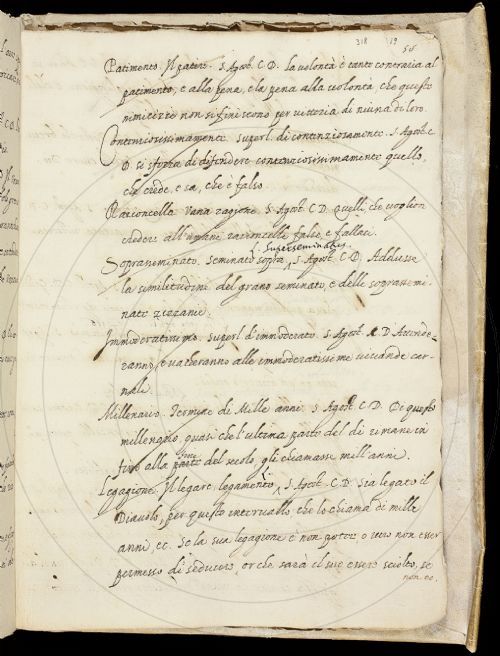 318 19
Patimento. Il patire. S. Agost. C. D. La volontà è tanto contraria al
patimento, e alla pena, e la pena alla volontà, che queste
nimicizie non si finiscono per vittoria di niuna di loro.
Contenziosissimamente. Superl. di contenziosamente. S. Agost. C.
D. si sforza di difendere contenziosissimamente quello,
che crede, e sa, che è falso
Razioncella. Vana ragione. S. Agost. C. D. Quelli, che voglion
credere all'umane razioncelle false, e fallaci.
l. Superseminatus
Soprasseminato. Seminato sopra. S. Agost. C. D. Adducesse
la similitudine del grano seminato, e delle soprassemi-
nate zizzanie.
Immoderatissimo. Superl. d'immoderato. S. Agost. C. D. Attende-
ranno, e vacheranno alle immoderatissime vivande car-
nali.
Millenario. Termine di Mille anni. S. Agost. C. D. Di questo
millenario, quasi che l'ultima parte del dì rimane in
fine
fino alla parte del secolo, gli chiamasse mill'anni.
Legagione. Il legare. legamento. S. Agost. C. D. Sia legato il
Diavolo, per questo intervallo, che lo chiama di mille
anni, ec. Se la sua legagione è non poter o vero non esser
permesso di seducere, or che sarà il suo essere sciolto, se
non ec.